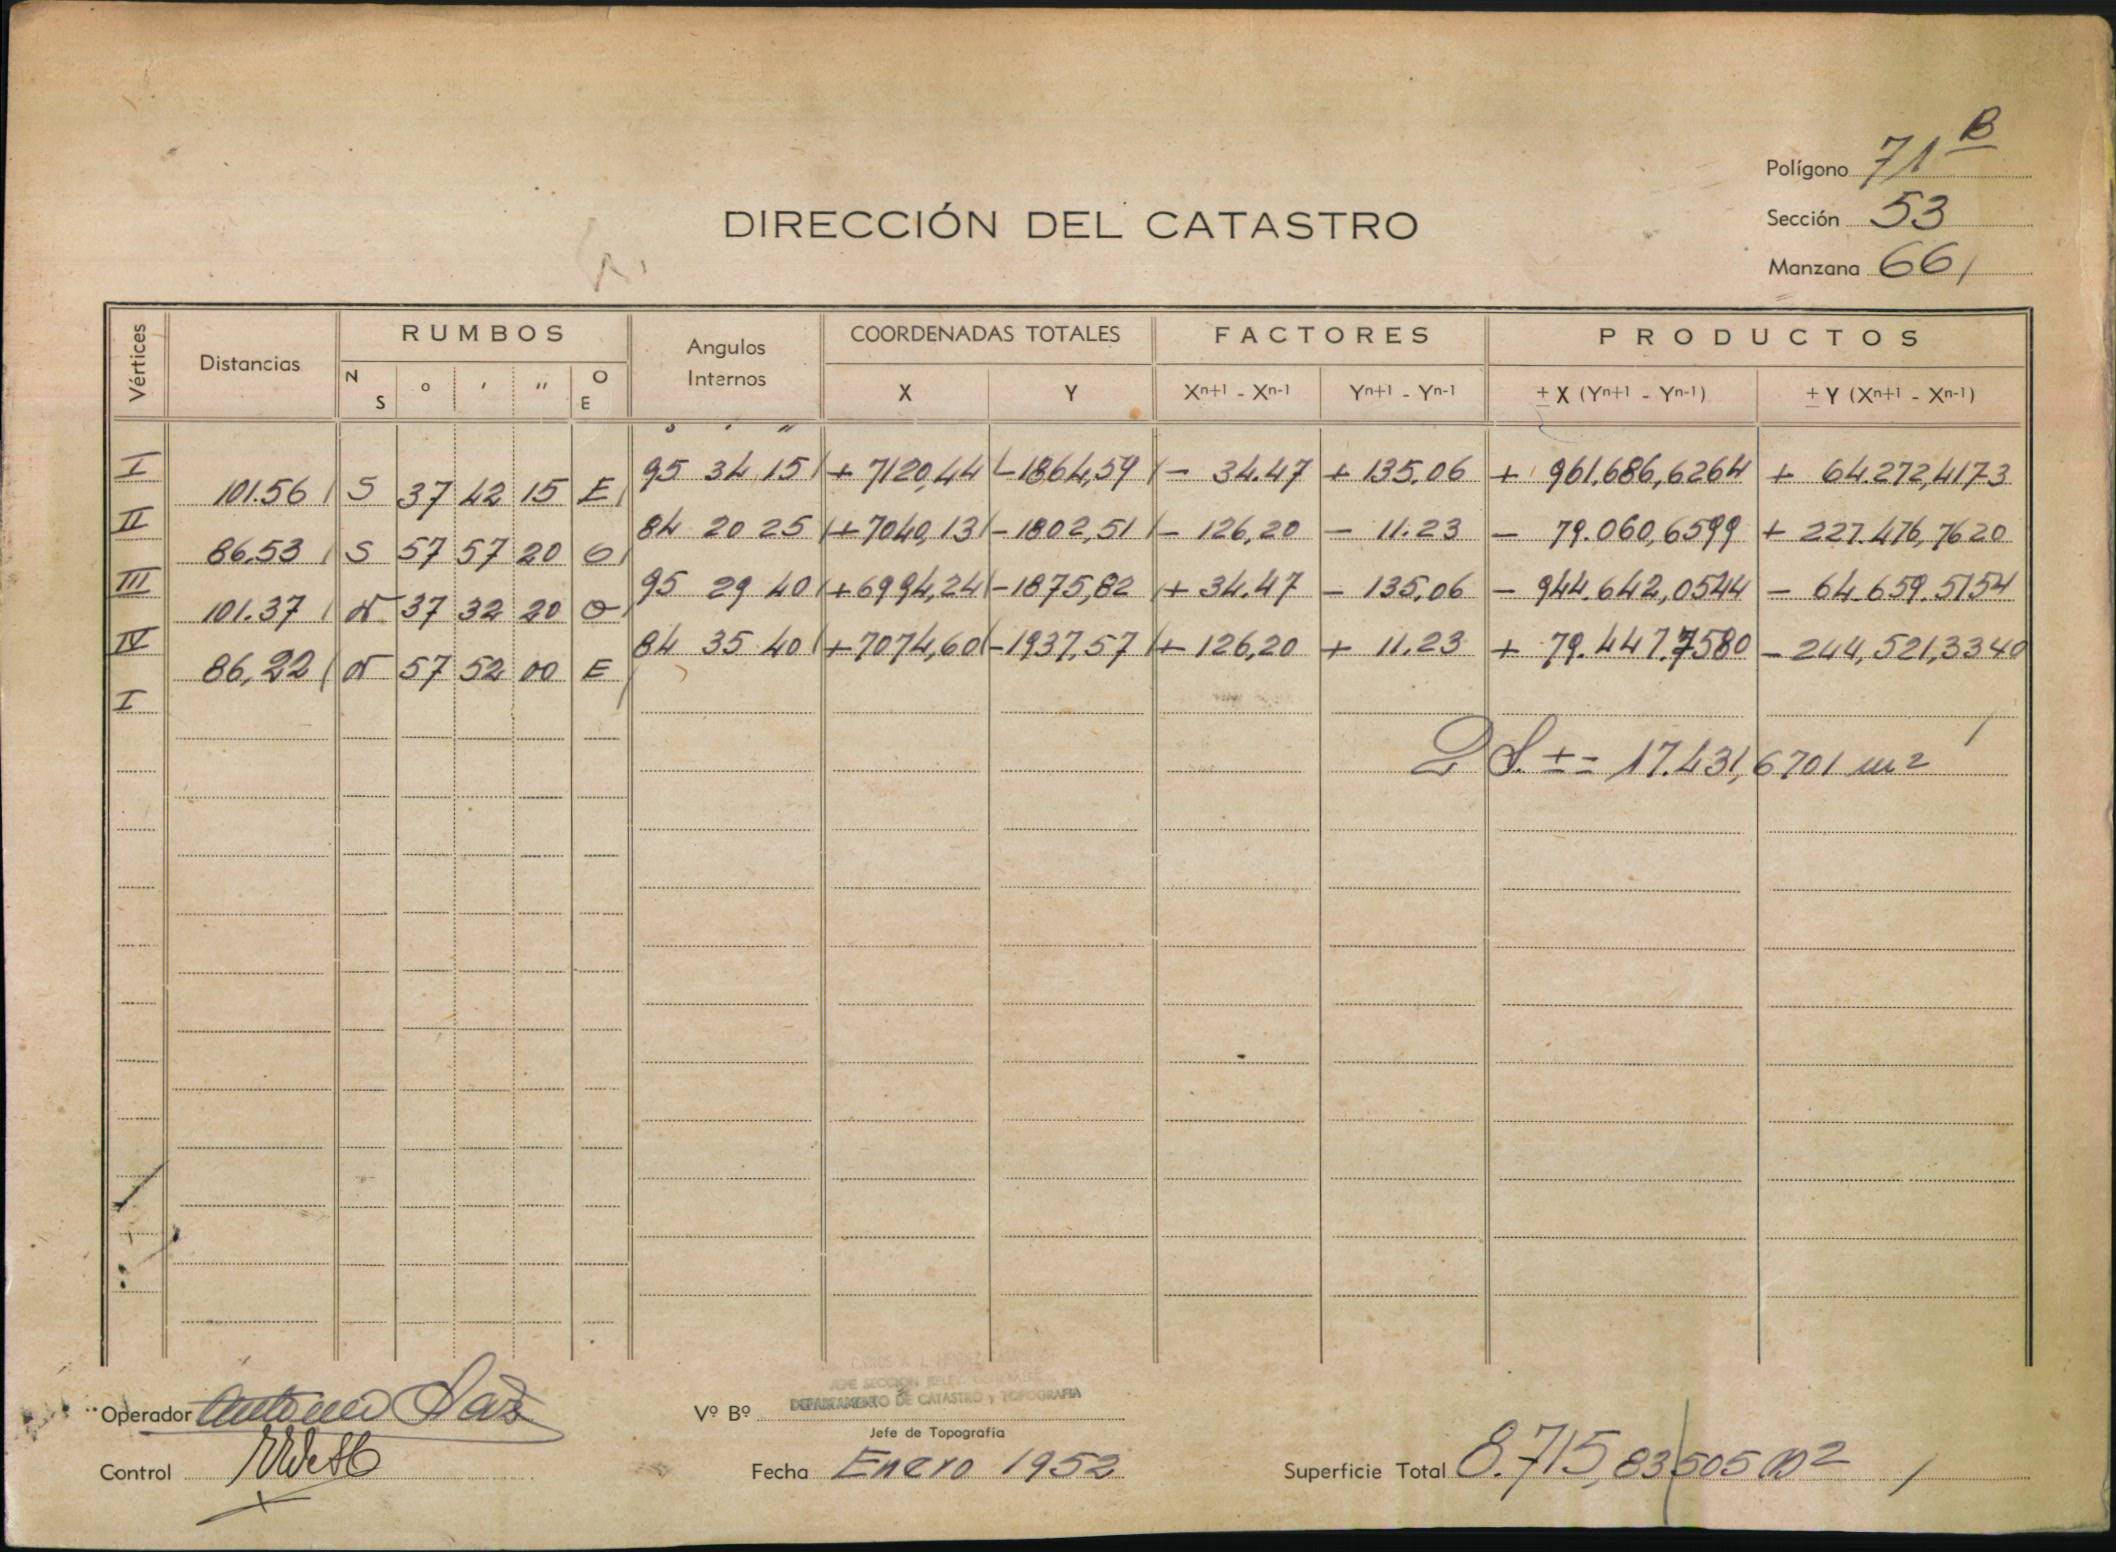 Polígono 71 B
Sección 53
Manzana 66
DIRECCIÓN DEL CATASTRO
Vértices Distancias RUMBOS Angulos Internos COORDENADAS TOTALES FACTORES PRODUCTOS
N S ° ' " O E X Y Xn+1 - Xn-1 Yn+1 - Yn-1 ± X (Yn+1 - Yn-1) ± Y (Xn+1 - Xn-1)
° ' "
I 95 34 15 + 7120,44 - 1864,59 - 34.47 + 135.06 + 961.686,6264 + 64.272,4173
101.56 S 37 42 15 E
II 84 20 25 + 7040,13 - 1802,51 - 126,20 - 11.23 - 79.060,6599 + 227.476,7620
86.53 S 57 57 20 O
III 95 29 40 + 6994,24 - 1875,82 + 34.47 - 135,06 - 944.642,0544 - 64.659.5154
101.37 N 37 32 20 O
IV 84 35 40 + 7074,60 - 1937,57 + 126,20 + 11.23 + 79.447.7580 - 244,521,3340
86,22 N 57 52 00 E
I
2 S. ± = 17.431,6701 m2
DEPARTAMENTO DE CATASTRO y TOPOGRAFIA
Operador Antonio
Vº Bº
Jefe de Topografía
Control
Fecha Enero 1952
Superficie Total 8.715,83505 m2